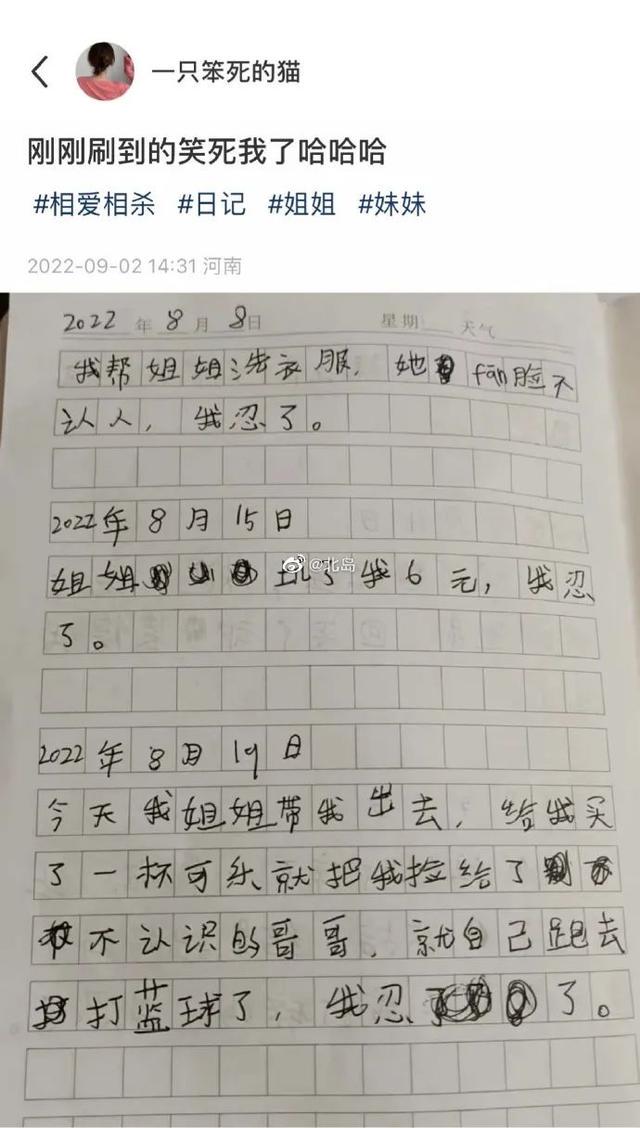 一只笨死的猫
刚刚刷到的笑死我了哈哈哈
#相爱相杀 #日记 #姐姐 #妹妹
2022-09-02 14:31 河南
2022 年 8 月 8日 星期 天气
我帮姐姐洗衣服,她 fān脸不
认人,我忍了。
2022年8月15日
姐姐坑了我6元,我忍
@北岛
了。
2022年8月19日
今天我姐姐带我出去,给我买
了一杯可乐就把我捡给了
不认识的哥哥,就自己跑去
打蓝球了,我忍了。